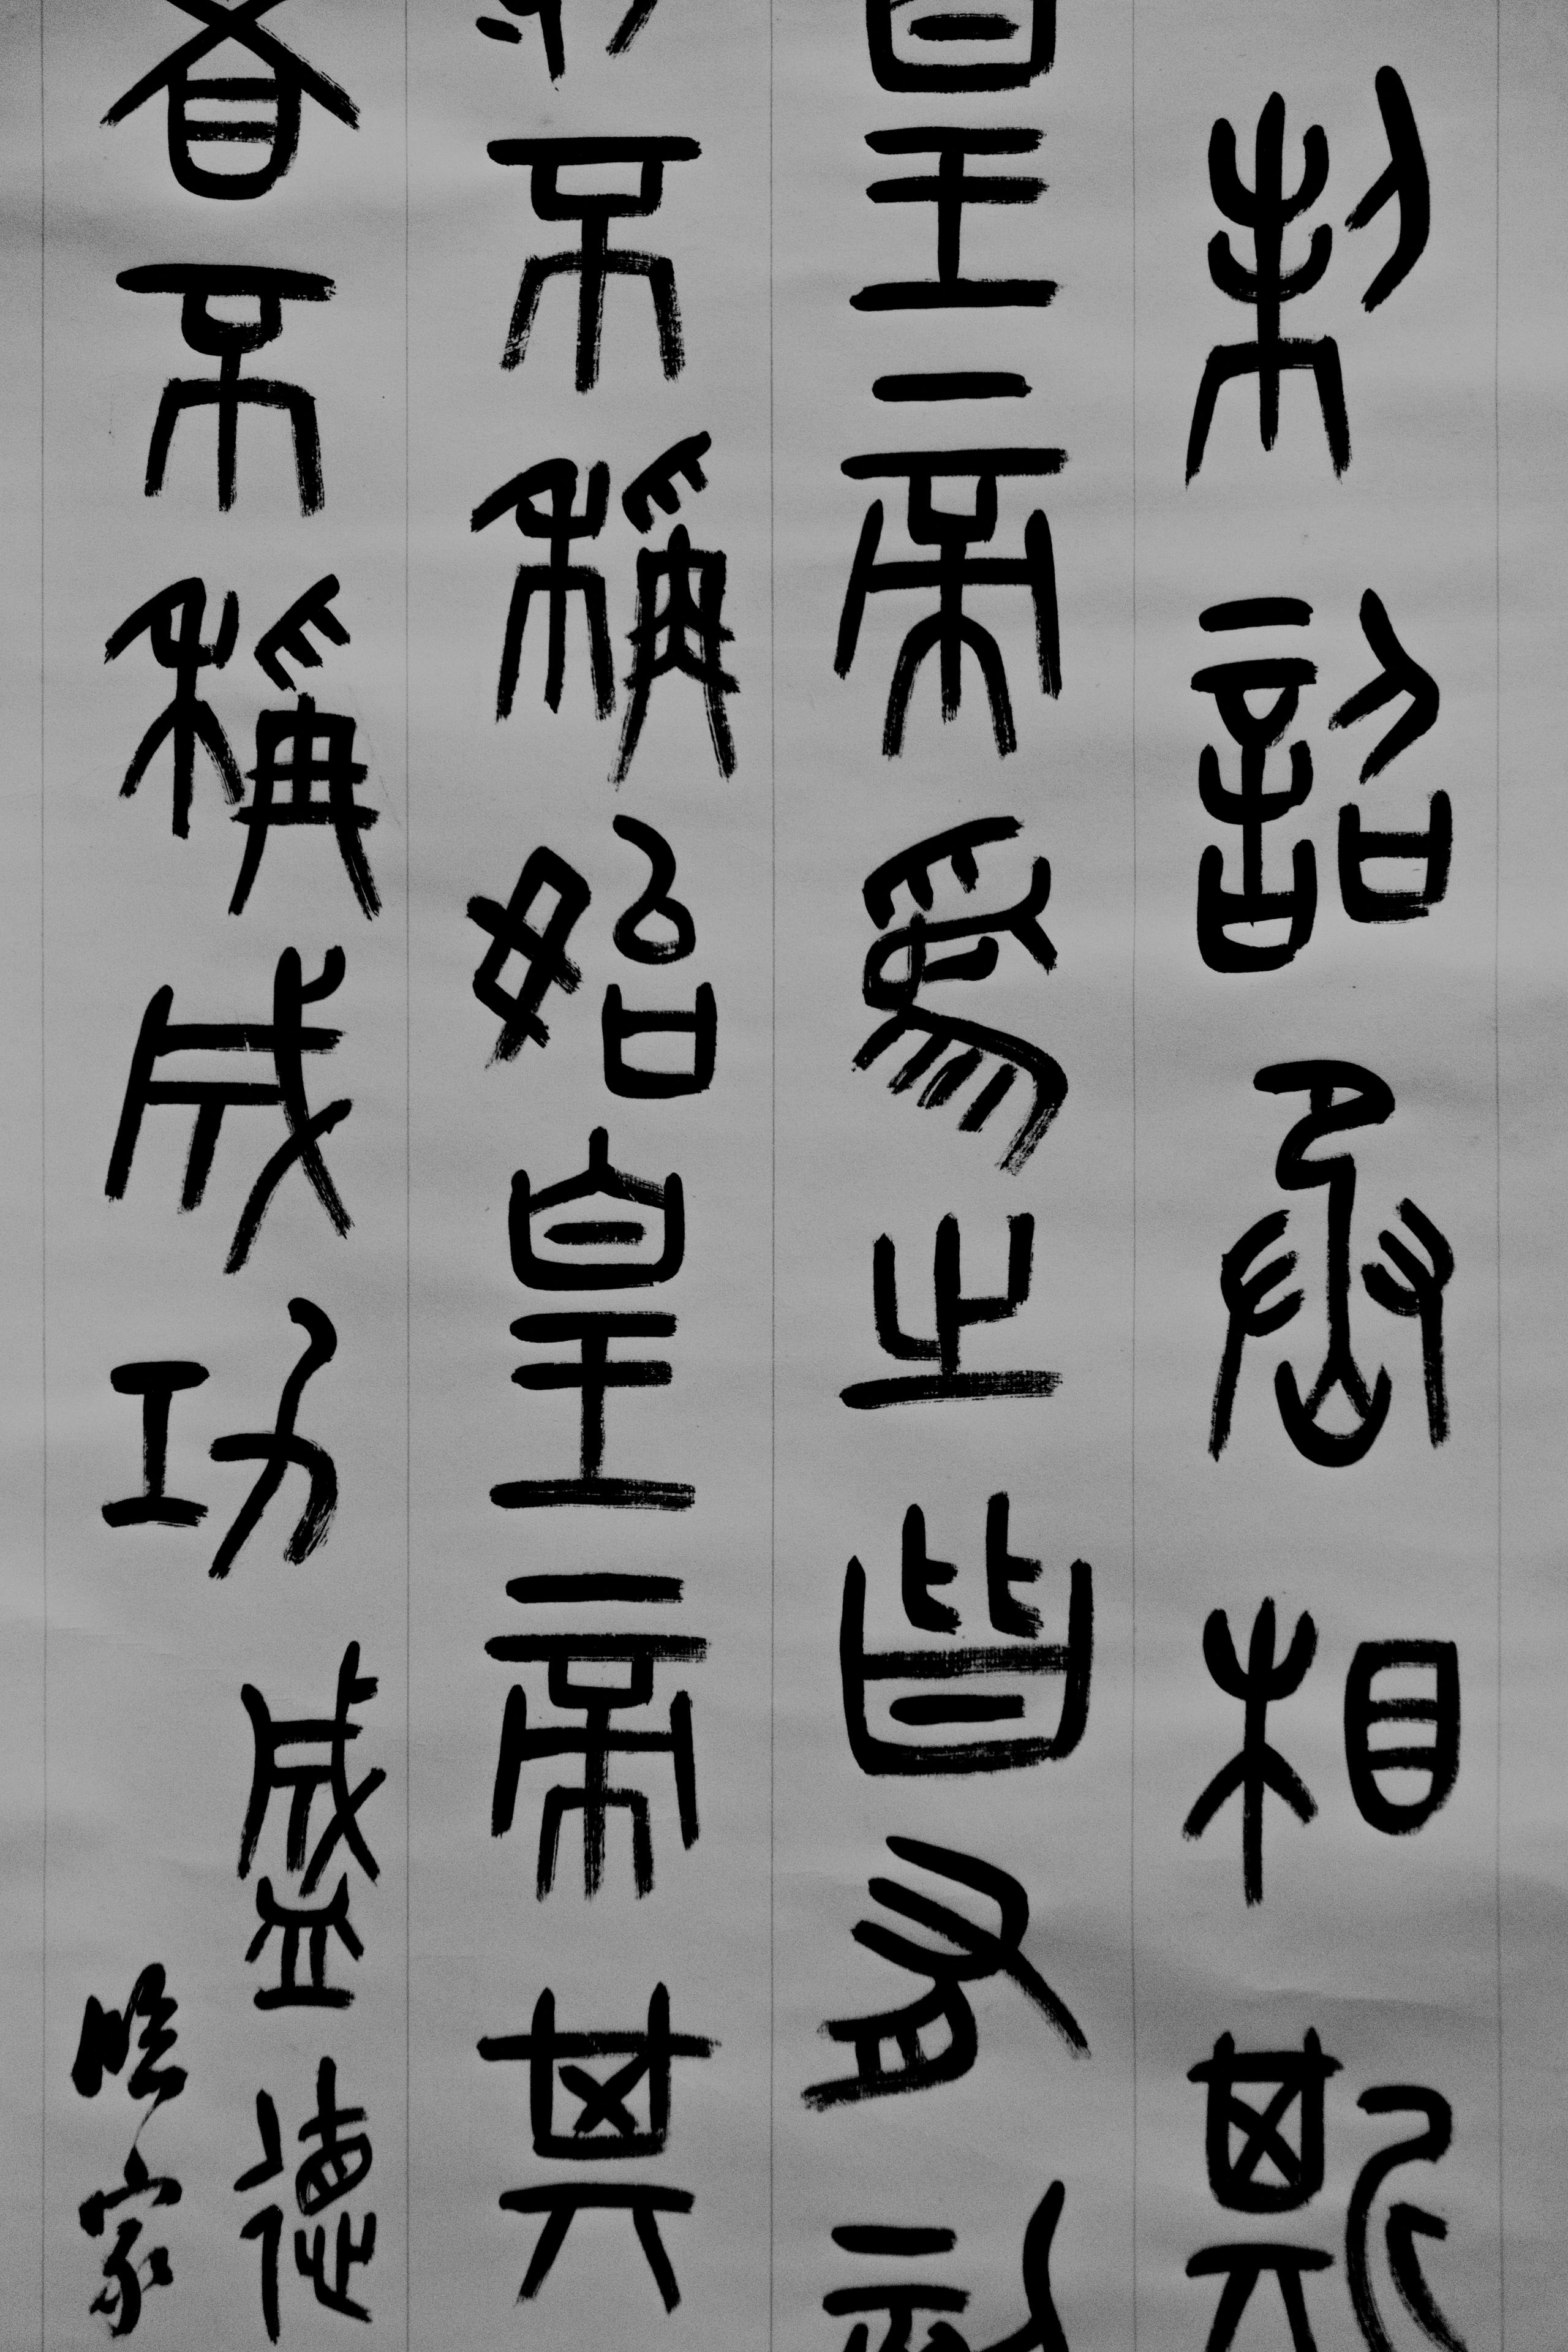 制詔丞相斯
皇帝爲之皆有刻
不稱始皇帝其
者不稱成功盛德
家